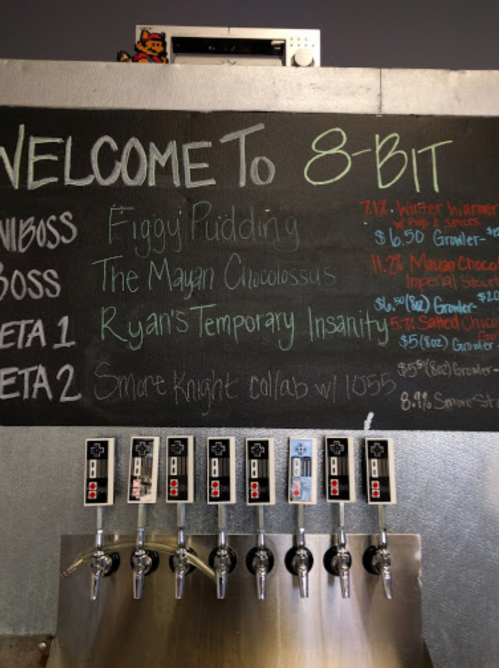 WELCOME TO 8-BIT
NIBOSS Figgy Pudding 7.1% Winter Warmer
w/ figs & spices
$6.50 Growler-
BOSS The Mayan Chocolossus 11.2% Mayan Chocol
Imperial Stout
$6.50 (8oz) Growler-
ETA 1 Ryan's Temporary Insanity 5.7% Salted Choco
$5 (8oz) Growler-
ETA 2 Smore Knight collab w/ 1055 (8oz) Growler-
8.9% Smore St